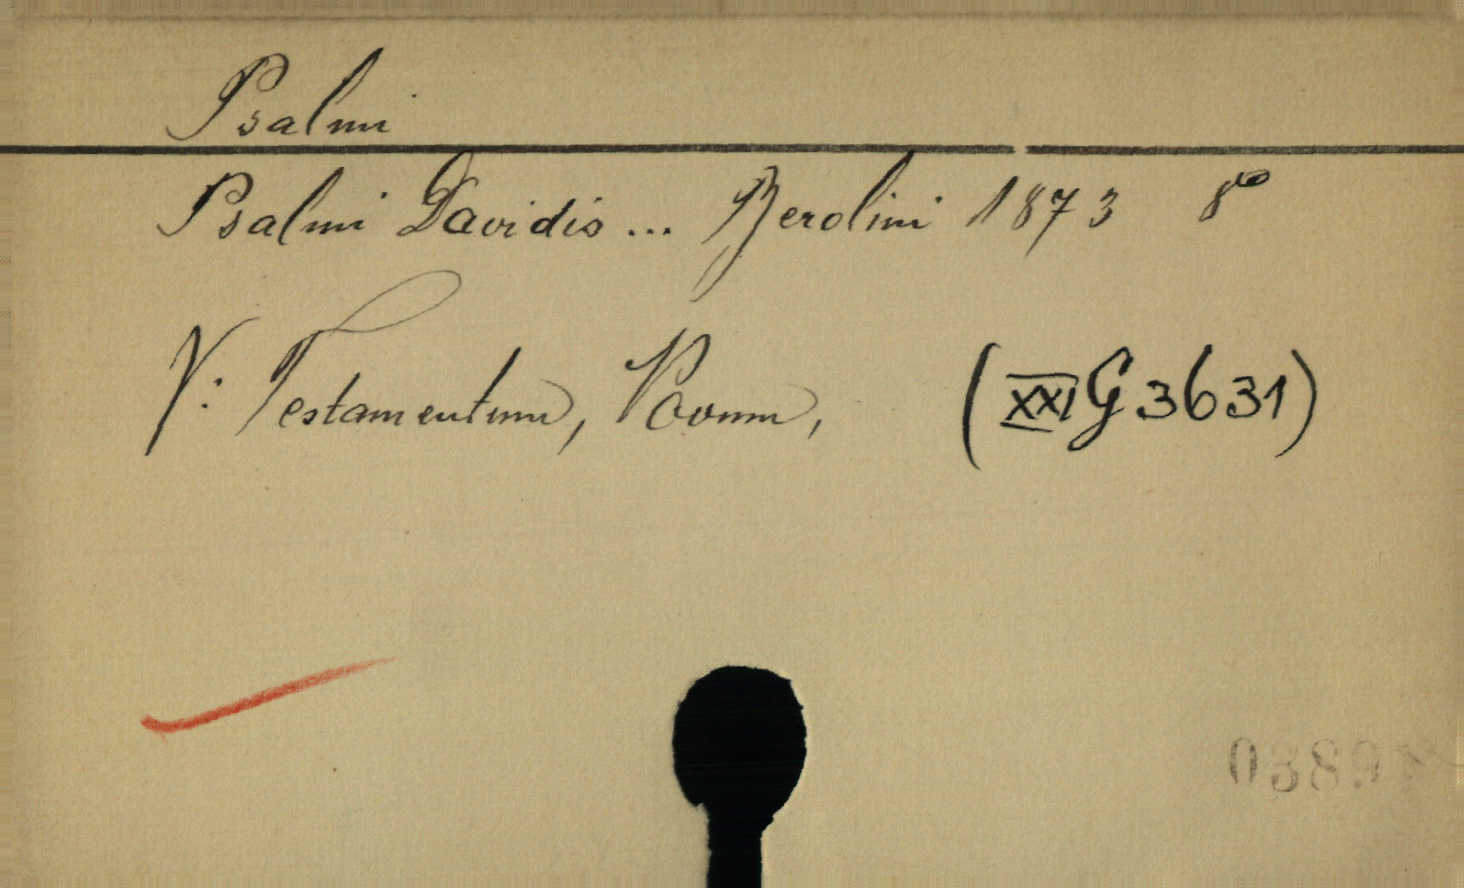 Psalmi
Psalmi Davidis ... Berolini 1873 8º
V: Testamentum, Novum, (XXI G 3631)